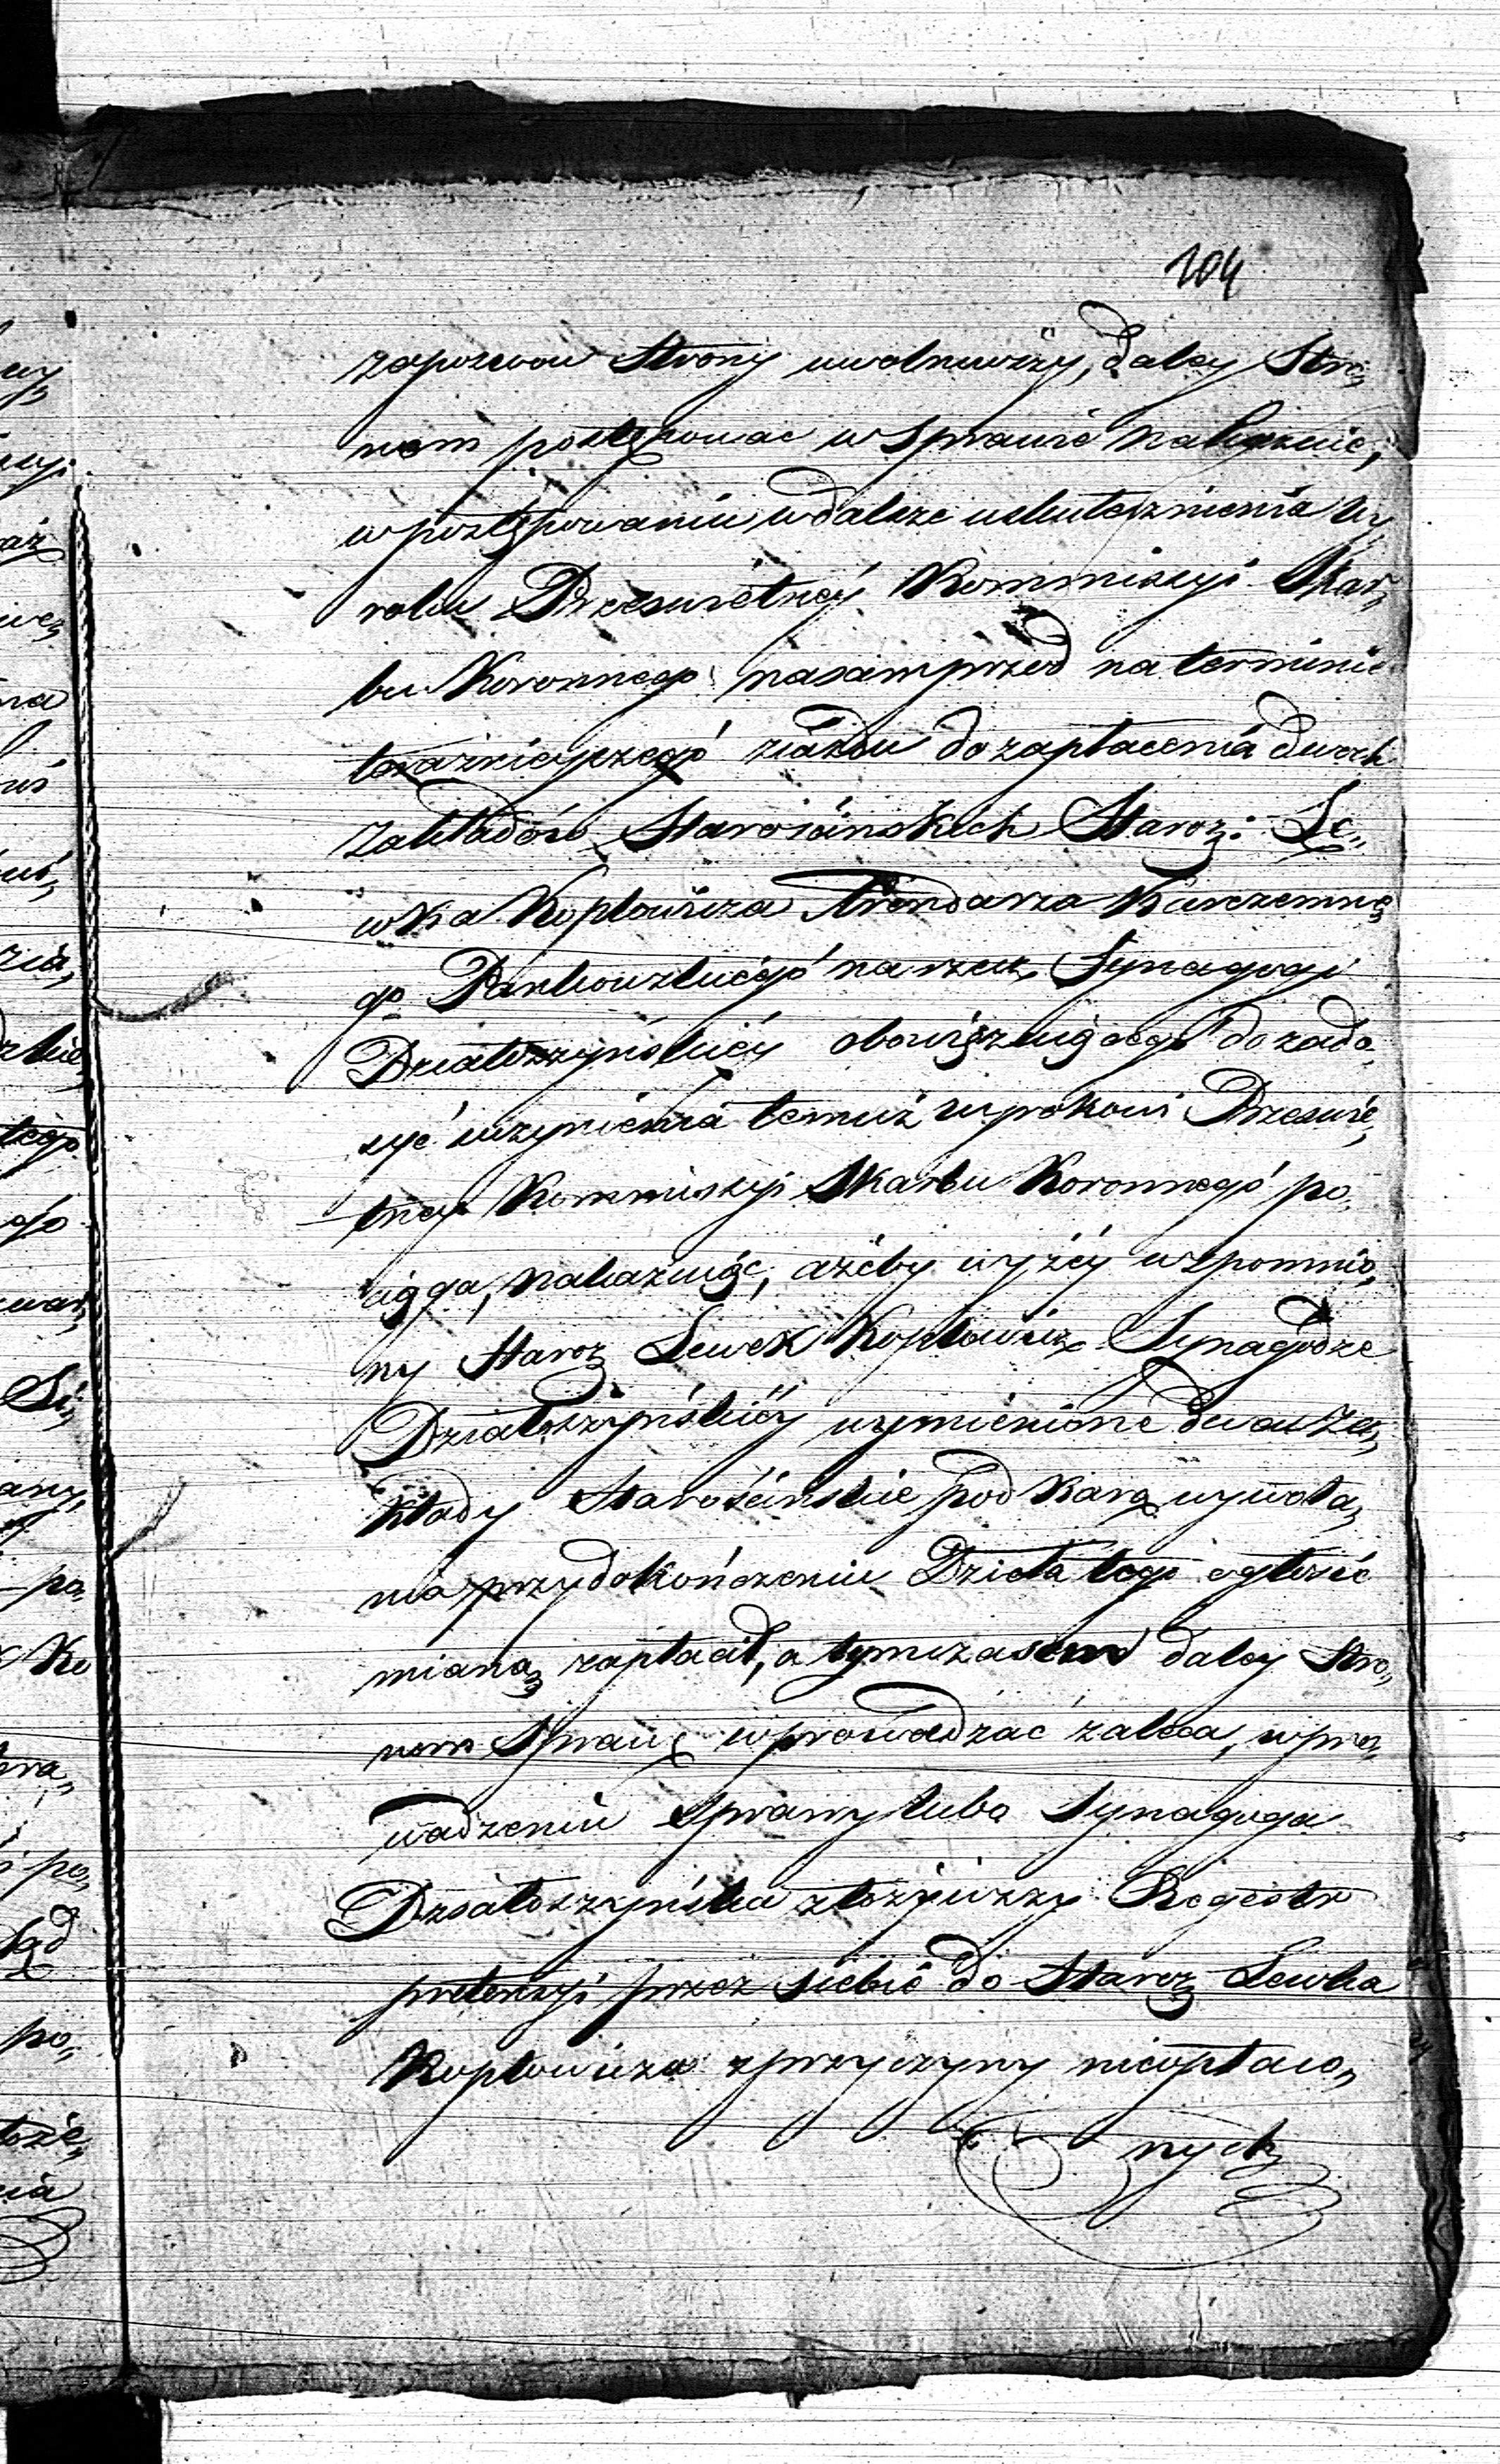 104
zapozwow Strony uwolniwszy, daley Stro„
nom postępować w sprawie nakazuie,
w postępowaniu w dalsze uskutecznienia wy„
roku Prześwietney Kommissyi Skar„
bu Koronnego nasamprzod na terminie
teraźnieyszego ziazdu do zapłacenia dwoch
zakładow Starościnskich Staroz: Le„
wka Koplowicza Arendarza Karczemne„
go Pankowskiego na rzecz Synagogi
Działoszyńskiey obowiązuiącego do zado„
syć uczynienia temuż wyrokowi Prześwie„
tney Kommissyi Skarbu Koronnego po„
ciąga, nakazuiąc, ażeby wyżey wspomnio„
ny Staroz Lewek Koplowicz Synagodze
Działoszyńskiey wymienione dwa za„
kłady Starościnskie pod karą wywoła„
nia przy dokończeniu Dzieła tego ogłosić
mianą zapłacił, a tymczasem daley Stro„
nom Sprawę wprowadzać zaleca, w pro„
wadzeniu sprawy lubo Synagoga
Działoszyńska złożywszy Regestr
pretensyi przez siebie do Staroz Lewka
Koplowicza z przyczyny nieopłaco„
nych